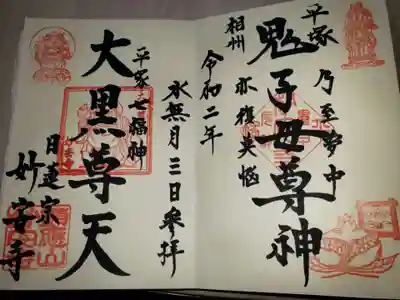 平塚
乃至夢中
鬼子母尊神
亦復莫悩
相州
令和二年
水無月三日参拝
平塚七福神
大黒尊天
日蓮宗
妙安寺